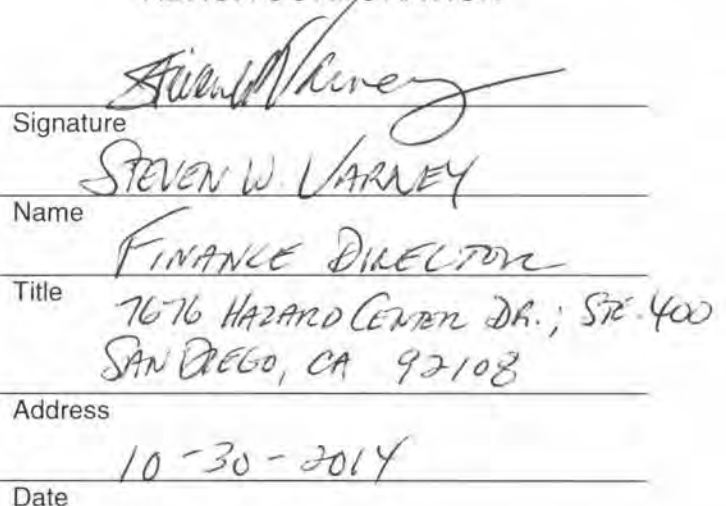 Steven W Varney
Signature
STEVEN W. VARNEY
Name
FINANCE DIRECTOR
Title
7676 HAZARD CENTER DR.; STE. 400
SAN DIEGO, CA 92108
Address
10-30-2014
Date